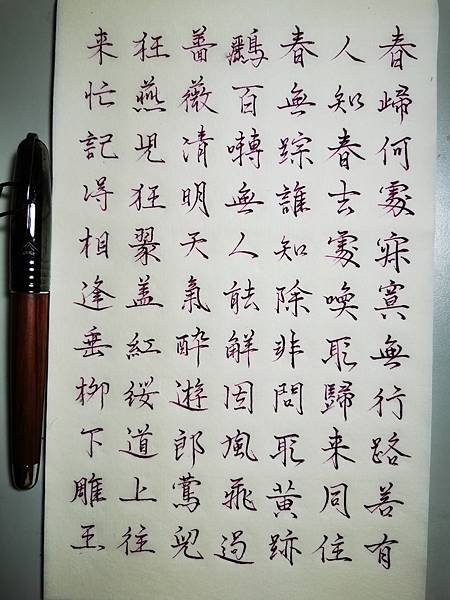 春歸何處寂寞無行路若有
人知春去處喚取歸来同住
春無踪誰知除非問取黃跡
鸝百囀無人能解因風飛過
薔薇清明天氣酔遊郎鶯兒
狂燕児狂翠盖紅綏道上往
来忙記得相逢垂柳下雕玉